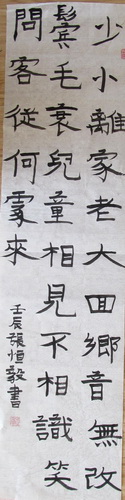 少小離家老大回鄉音無改
鬢毛衰兒童相見不相識笑
問客從何處來
壬辰張恒毅書